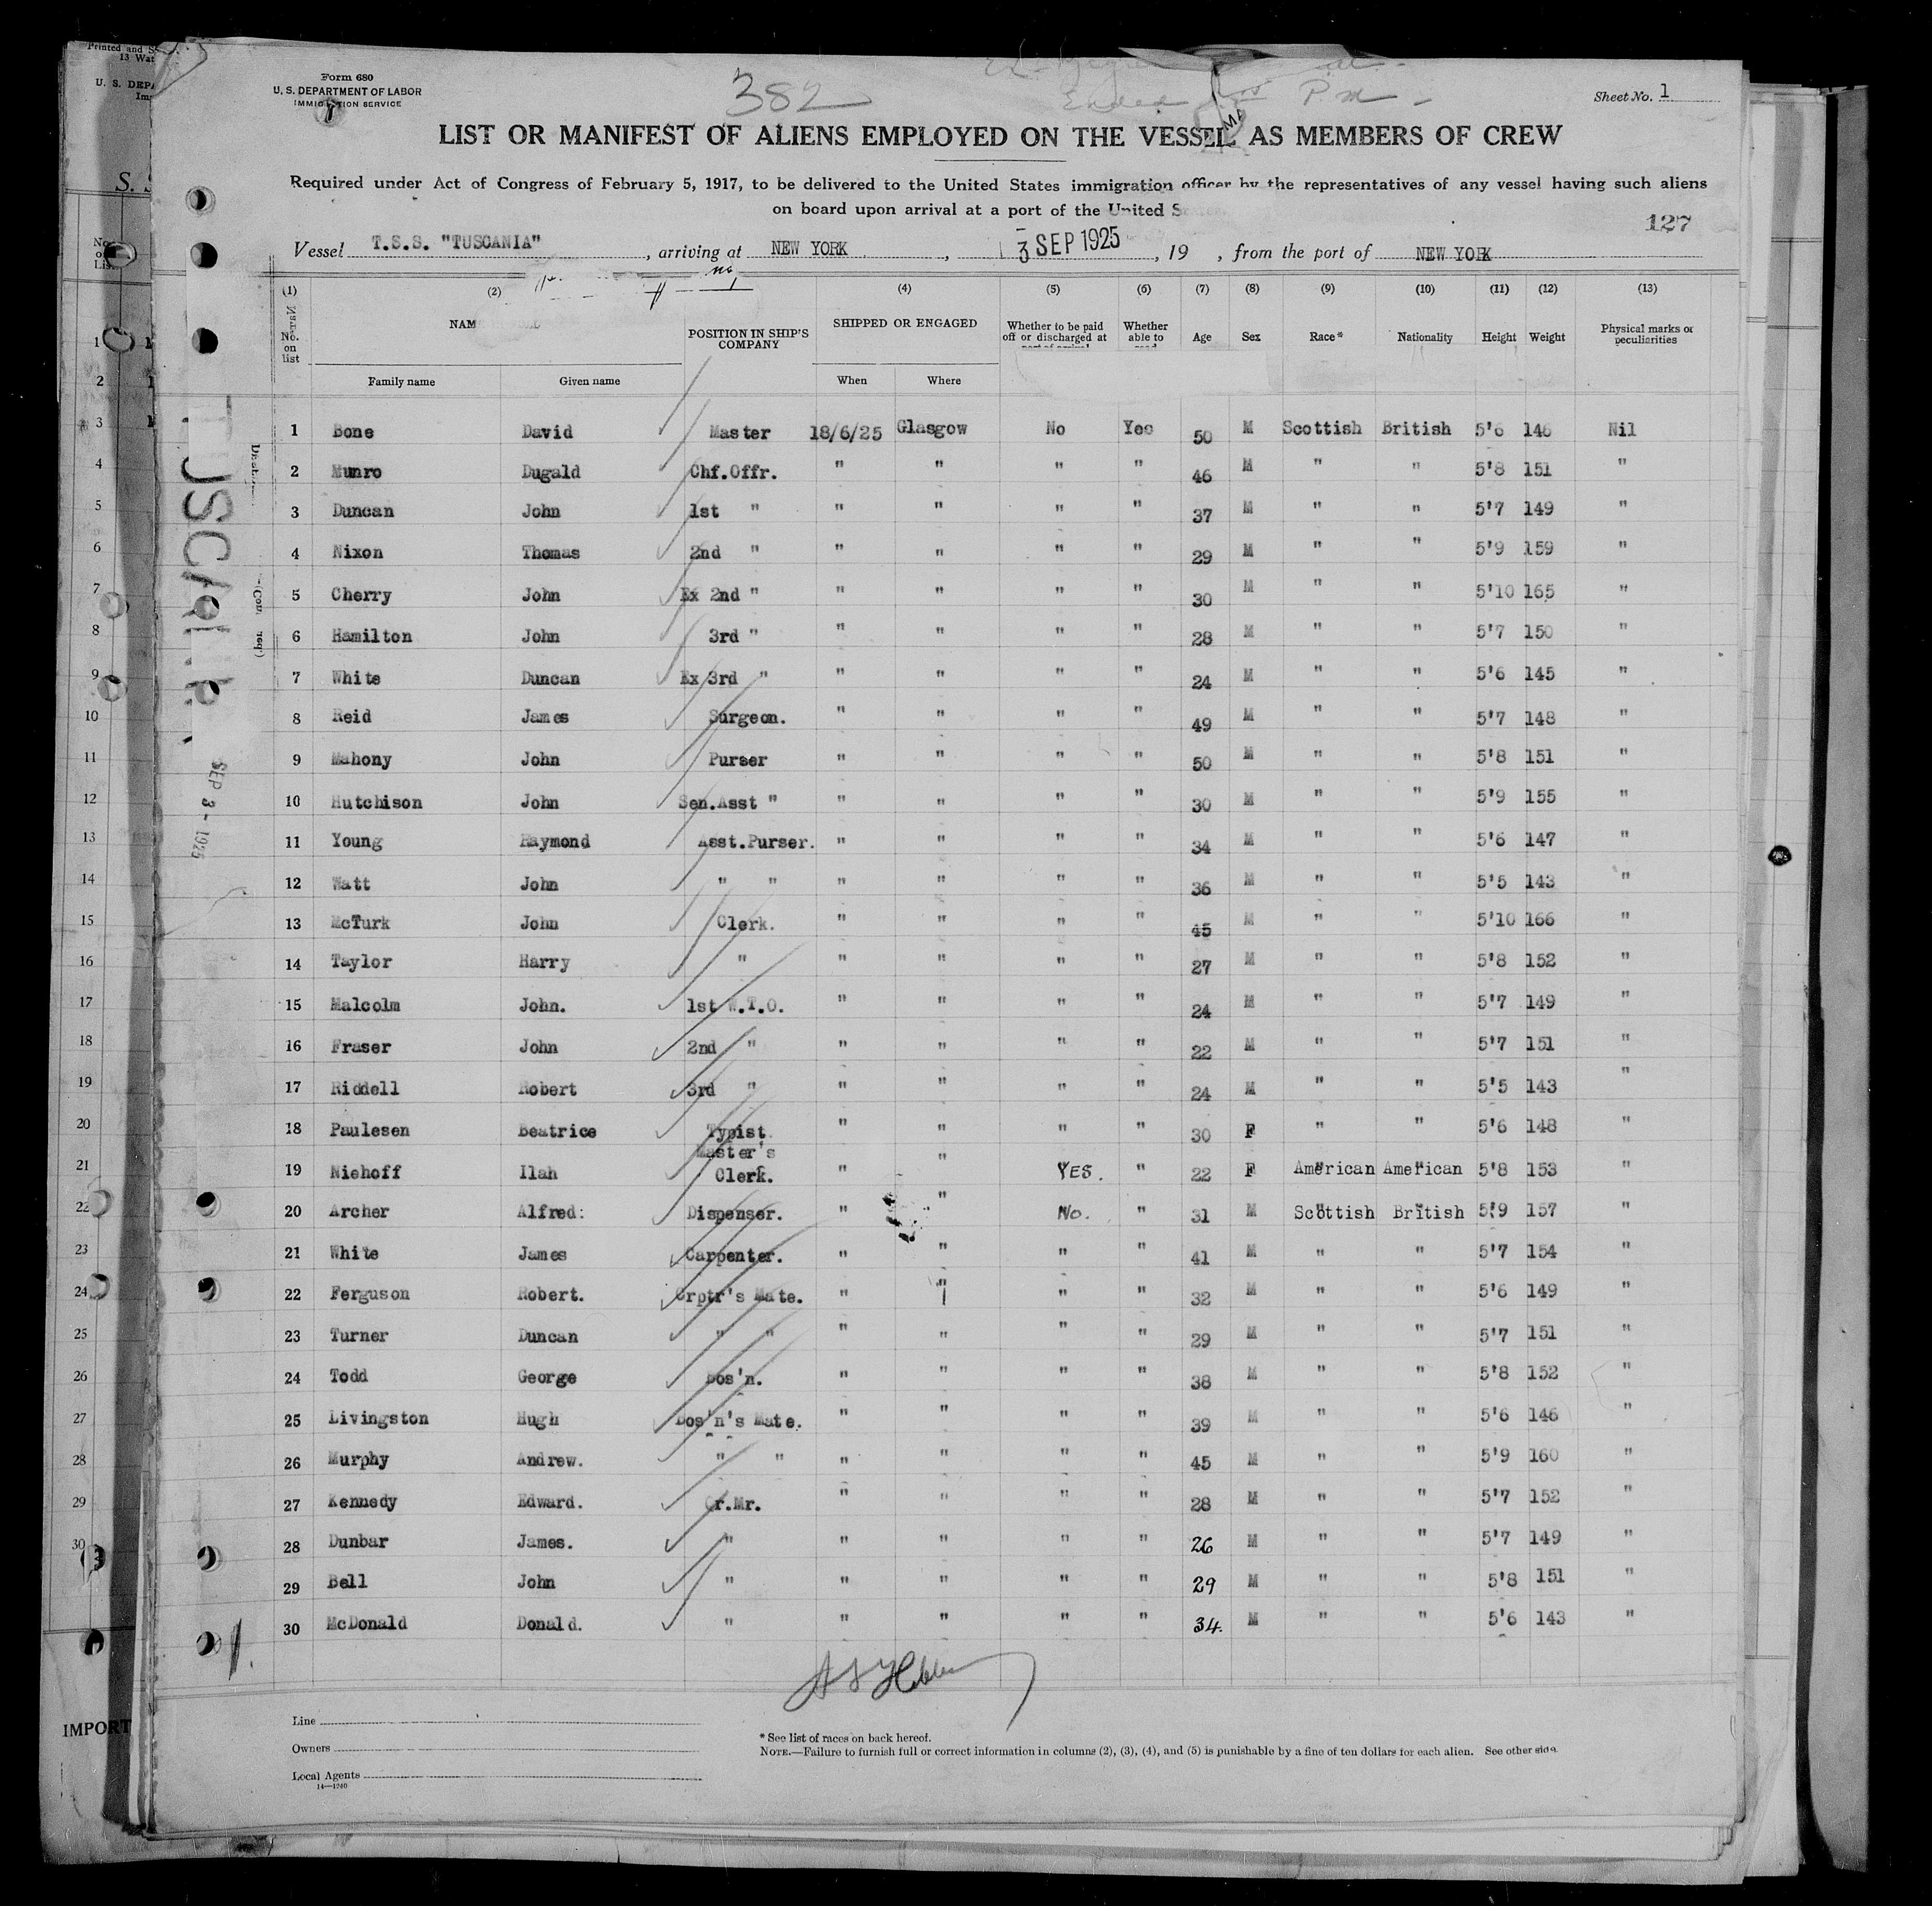 Form 680
U. S. DEPARTMENT OF LABOR
IMMIGRATION SERVICE
382
Ended P.M.
Sheet No. 1
LIST OR MANIFEST OF ALIENS EMPLOYED ON THE VESSEL AS MEMBERS OF CREW
Required under Act of Congress of February 5, 1917, to be delivered to the United States immigration officer by the representatives of any vessel having such aliens
on board upon arrival at a port of the United
127
Vessel T.S.S. "TUSCANIA", arriving at NEW YORK, 3 SEP 1925, 19 , from the port of NEW YORK
(1) (2) (4) (5) (6) (7) (8) (9) (10) (11) (12) (13)
No. on list POSITION IN SHIP'S COMPANY SHIPPED OR ENGAGED Whether to be paid off or discharged at Whether able to Age Sex Race* Nationality Height Weight Physical marks or peculiarities
Family name Given name When Where
1 Bone David Master 18/6/25 Glasgow No Yes 50 M Scottish British 5'6 146 Nil
2 Munro Dugald Chf.Offr. " " " " 46 M " " 5'8 151 "
3 Duncan John 1st " " " " " 37 M " " 5'7 149 "
4 Nixon Thomas 2nd " " " " " 29 M " " 5'9 159 "
5 Cherry John Ex 2nd " " " " " 30 M " " 5'10 165 "
6 Hamilton John 3rd " " " " " 28 M " " 5'7 150 "
7 White Duncan Ex 3rd " " " " " 24 M " " 5'6 145 "
8 Reid James Surgeon. " " " " 49 M " " 5'7 148 "
9 Mahony John Purser " " " " 50 M " " 5'8 151 "
10 Hutchison John Sen.Asst " " " " " 30 M " " 5'9 155 "
11 Young Raymond Asst.Purser. " " " " 34 M " " 5'6 147 "
12 Watt John " " " " " " 36 M " " 5'5 143 "
13 McTurk John Clerk. " " " " 45 M " " 5'10 166 "
14 Taylor Harry " " " " " 27 M " " 5'8 152 "
15 Malcolm John. 1st W.T.O. " " " " 24 M " " 5'7 149 "
16 Fraser John 2nd " " " " " 22 M " " 5'7 151 "
17 Riddell Robert 3rd " " " " " 24 M " " 5'5 143 "
18 Paulesen Beatrice Typist " " " " 30 F " " 5'6 148 "
19 Niehoff Ilah Master's Clerk. " " YES. " 22 F American American 5'8 153 "
20 Archer Alfred: Dispenser. " " No. " 31 M Scottish British 5'9 157 "
21 White James Carpenter. " " " " 41 M " " 5'7 154 "
22 Ferguson Robert. Crptr's Mate. " " " " 32 M " " 5'6 149 "
23 Turner Duncan " " " " " " 29 M " " 5'7 151 "
24 Todd George Bos'n. " " " " 38 M " " 5'8 152 "
25 Livingston Hugh Bos'n's Mate. " " " " 39 M " " 5'6 146 "
26 Murphy Andrew. " " " " " " 45 M " " 5'9 160 "
27 Kennedy Edward. Qr.Mr. " " " " 28 M " " 5'7 152 "
28 Dunbar James. " " " " " 26 M " " 5'7 149 "
29 Bell John " " " " " 29 M " " 5'8 151 "
30 McDonald Donald. " " " " " 34. M " " 5'6 143 "
Line
Owners
Local Agents
14—1240
* See list of races on back hereof.
NOTE.—Failure to furnish full or correct information in columns (2), (3), (4), and (5) is punishable by a fine of ten dollars for each alien. See other side
SEP 3 - 1925
IMPORT